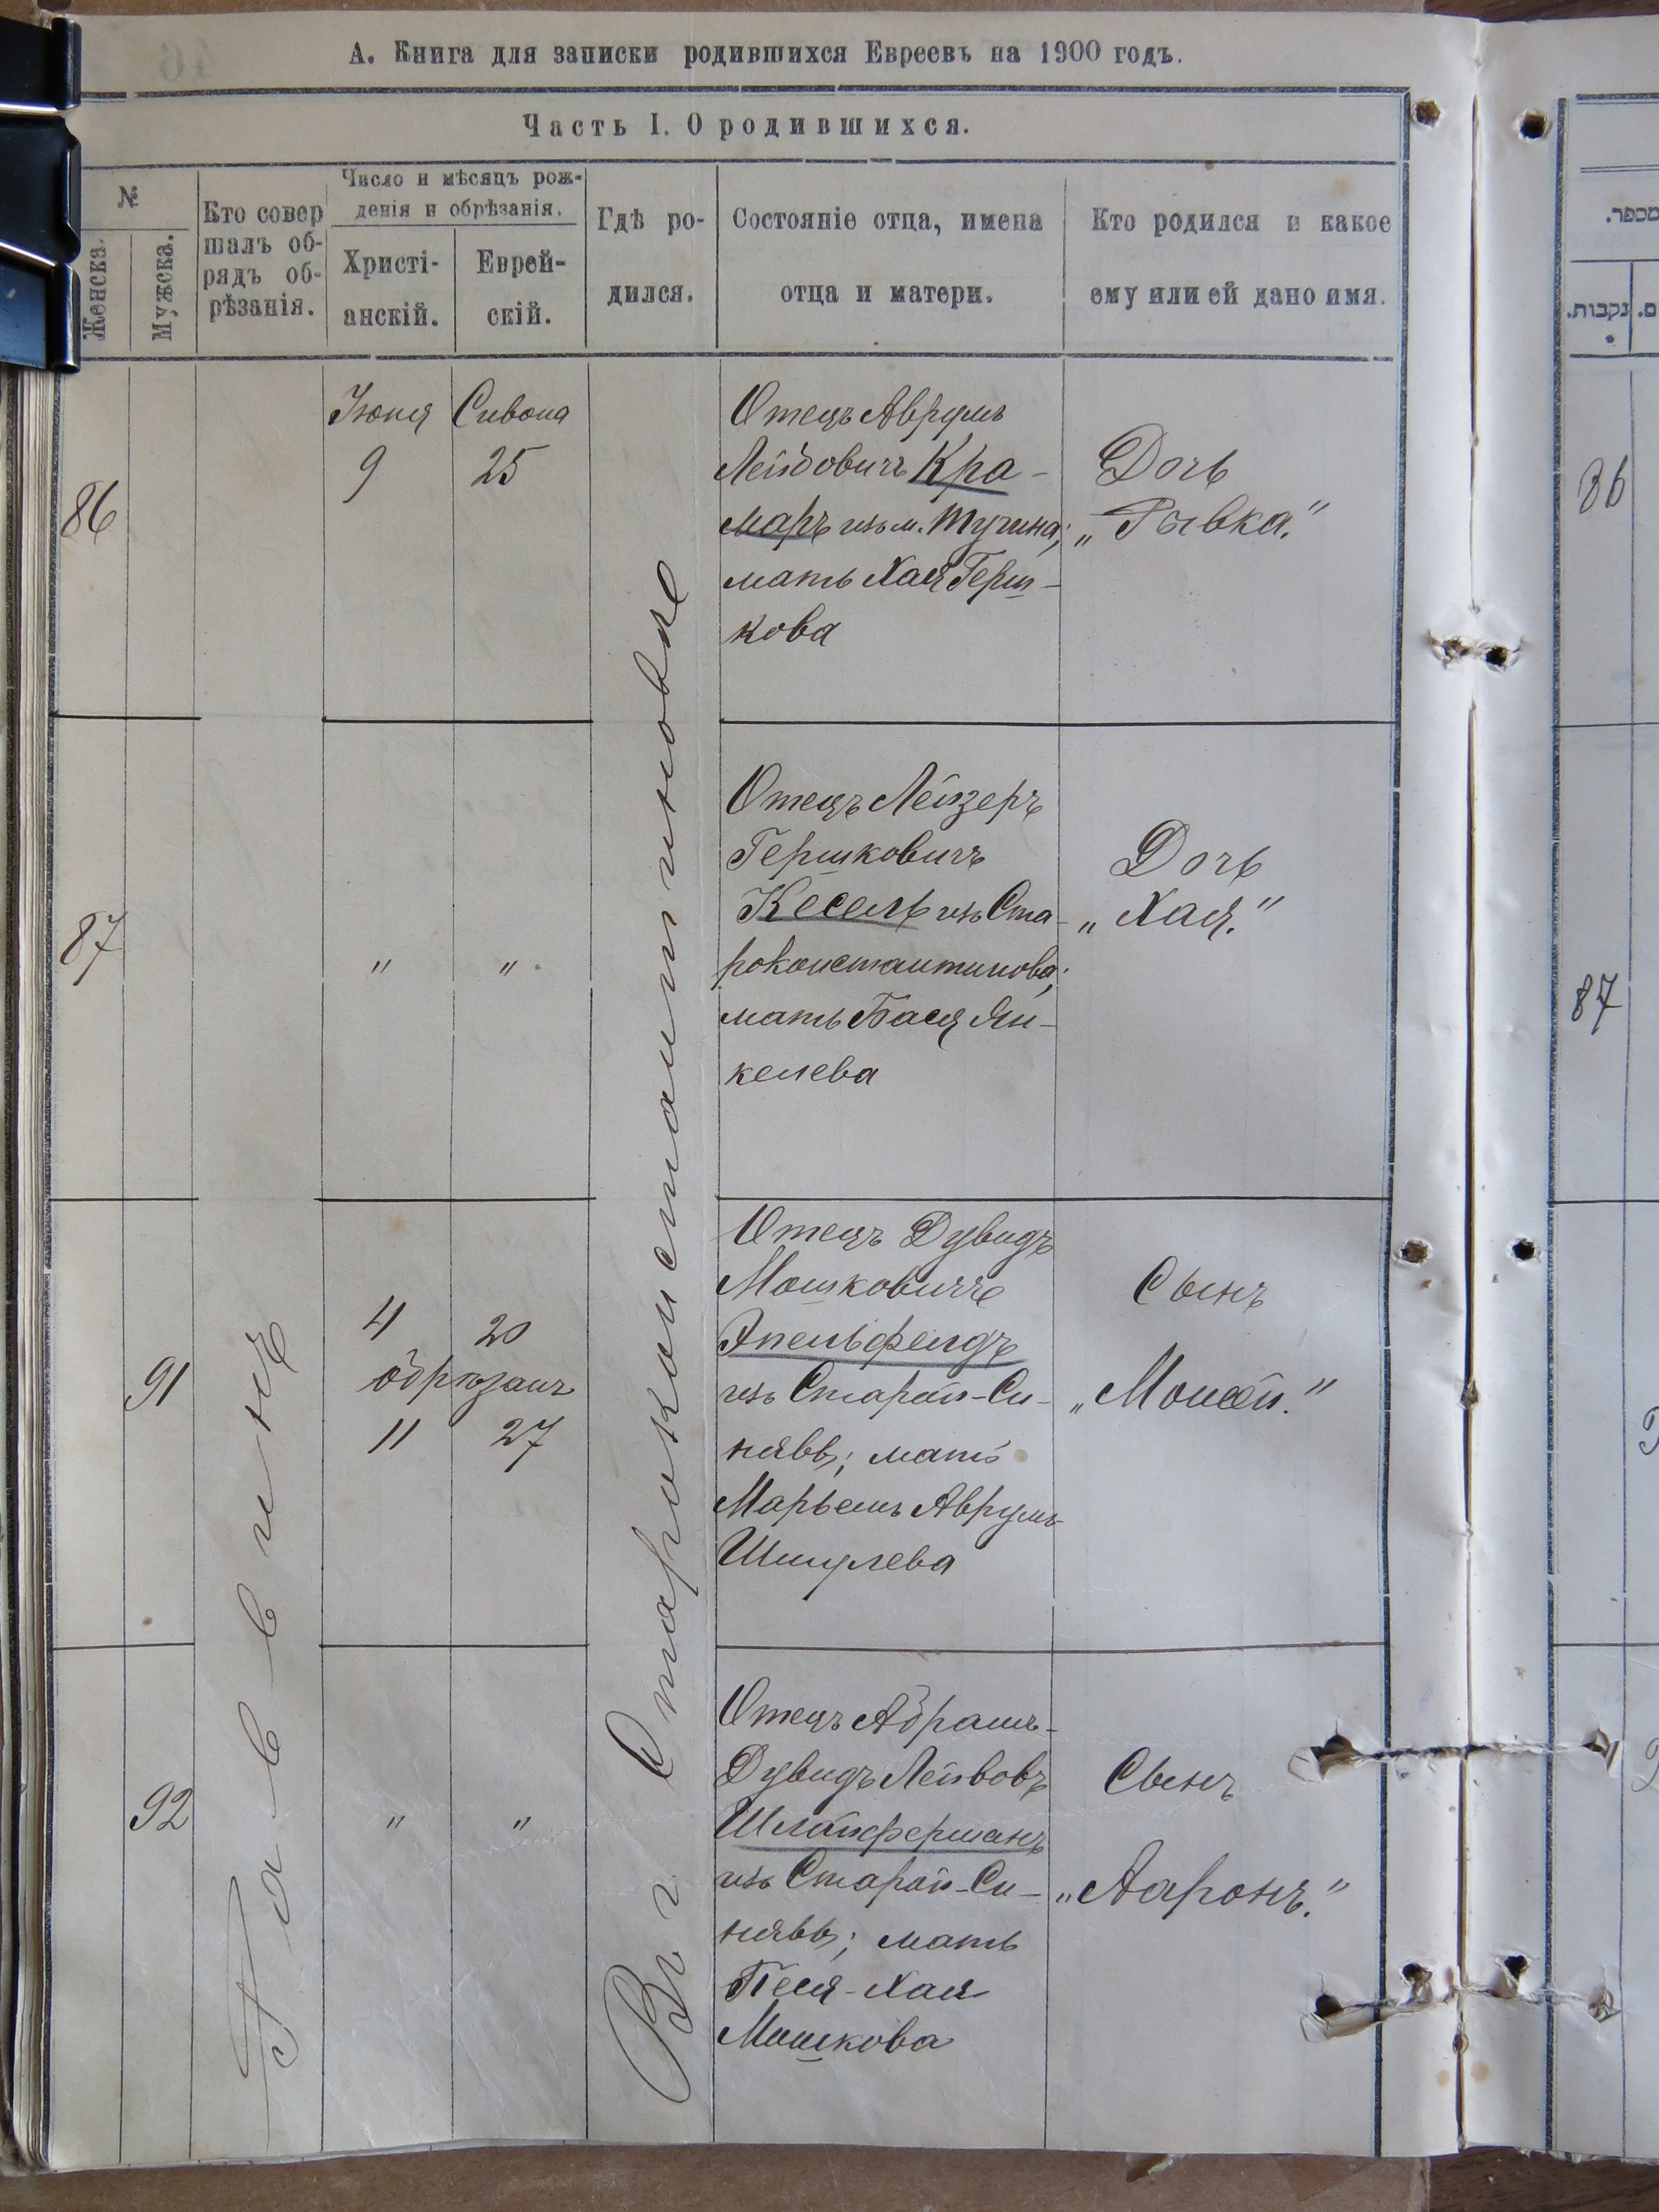 А. Книга для записки родившихся Евреевъ на 1900 годъ.
Часть I. О родившихся.
№
Женска.
Мужска.
Кто совер
шалъ об-
рядъ об-
рѣзанія.
Число и мѣсяцъ рож-
денія и обрѣзанія.
Христі-
анскій.
Еврей-
скій.
Гдѣ ро-
дился.
Состояніе отца, имена
отца и матери.
Кто родился и какое
ему или ей дано имя.
86
Іюня
9
Сивона
25
Отецъ Аврумъ
Лейбовичъ Кра-
маръ изъ м. Тучина;
мать Хая Герш-
кова
Дочь
„Рывка."
87
"
"
Отецъ Лейзеръ
Гершковичъ
Кесель изъ Ста-
роконстантинова;
мать Бася Ян-
келева
Дочь
„Хая."
91
4 20
обрѣзанъ
11 27
Отецъ Дувидъ
Мошковичъ
Эпельфельдъ
изъ Старой-Си-
нявы; мать
Марьемъ Аврумъ
Шмулева
Сынъ
„Мойсей."
92
"
"
Отецъ Абрамъ-
Дувидъ Лейвовъ
Шлайферманъ
изъ Старой-Си-
нявы; мать
Песя-Хая
Мошкова
Сынъ
„Ааронъ."
Въ г. Староконстантиновѣ
מספר.
נקבות.
86
87